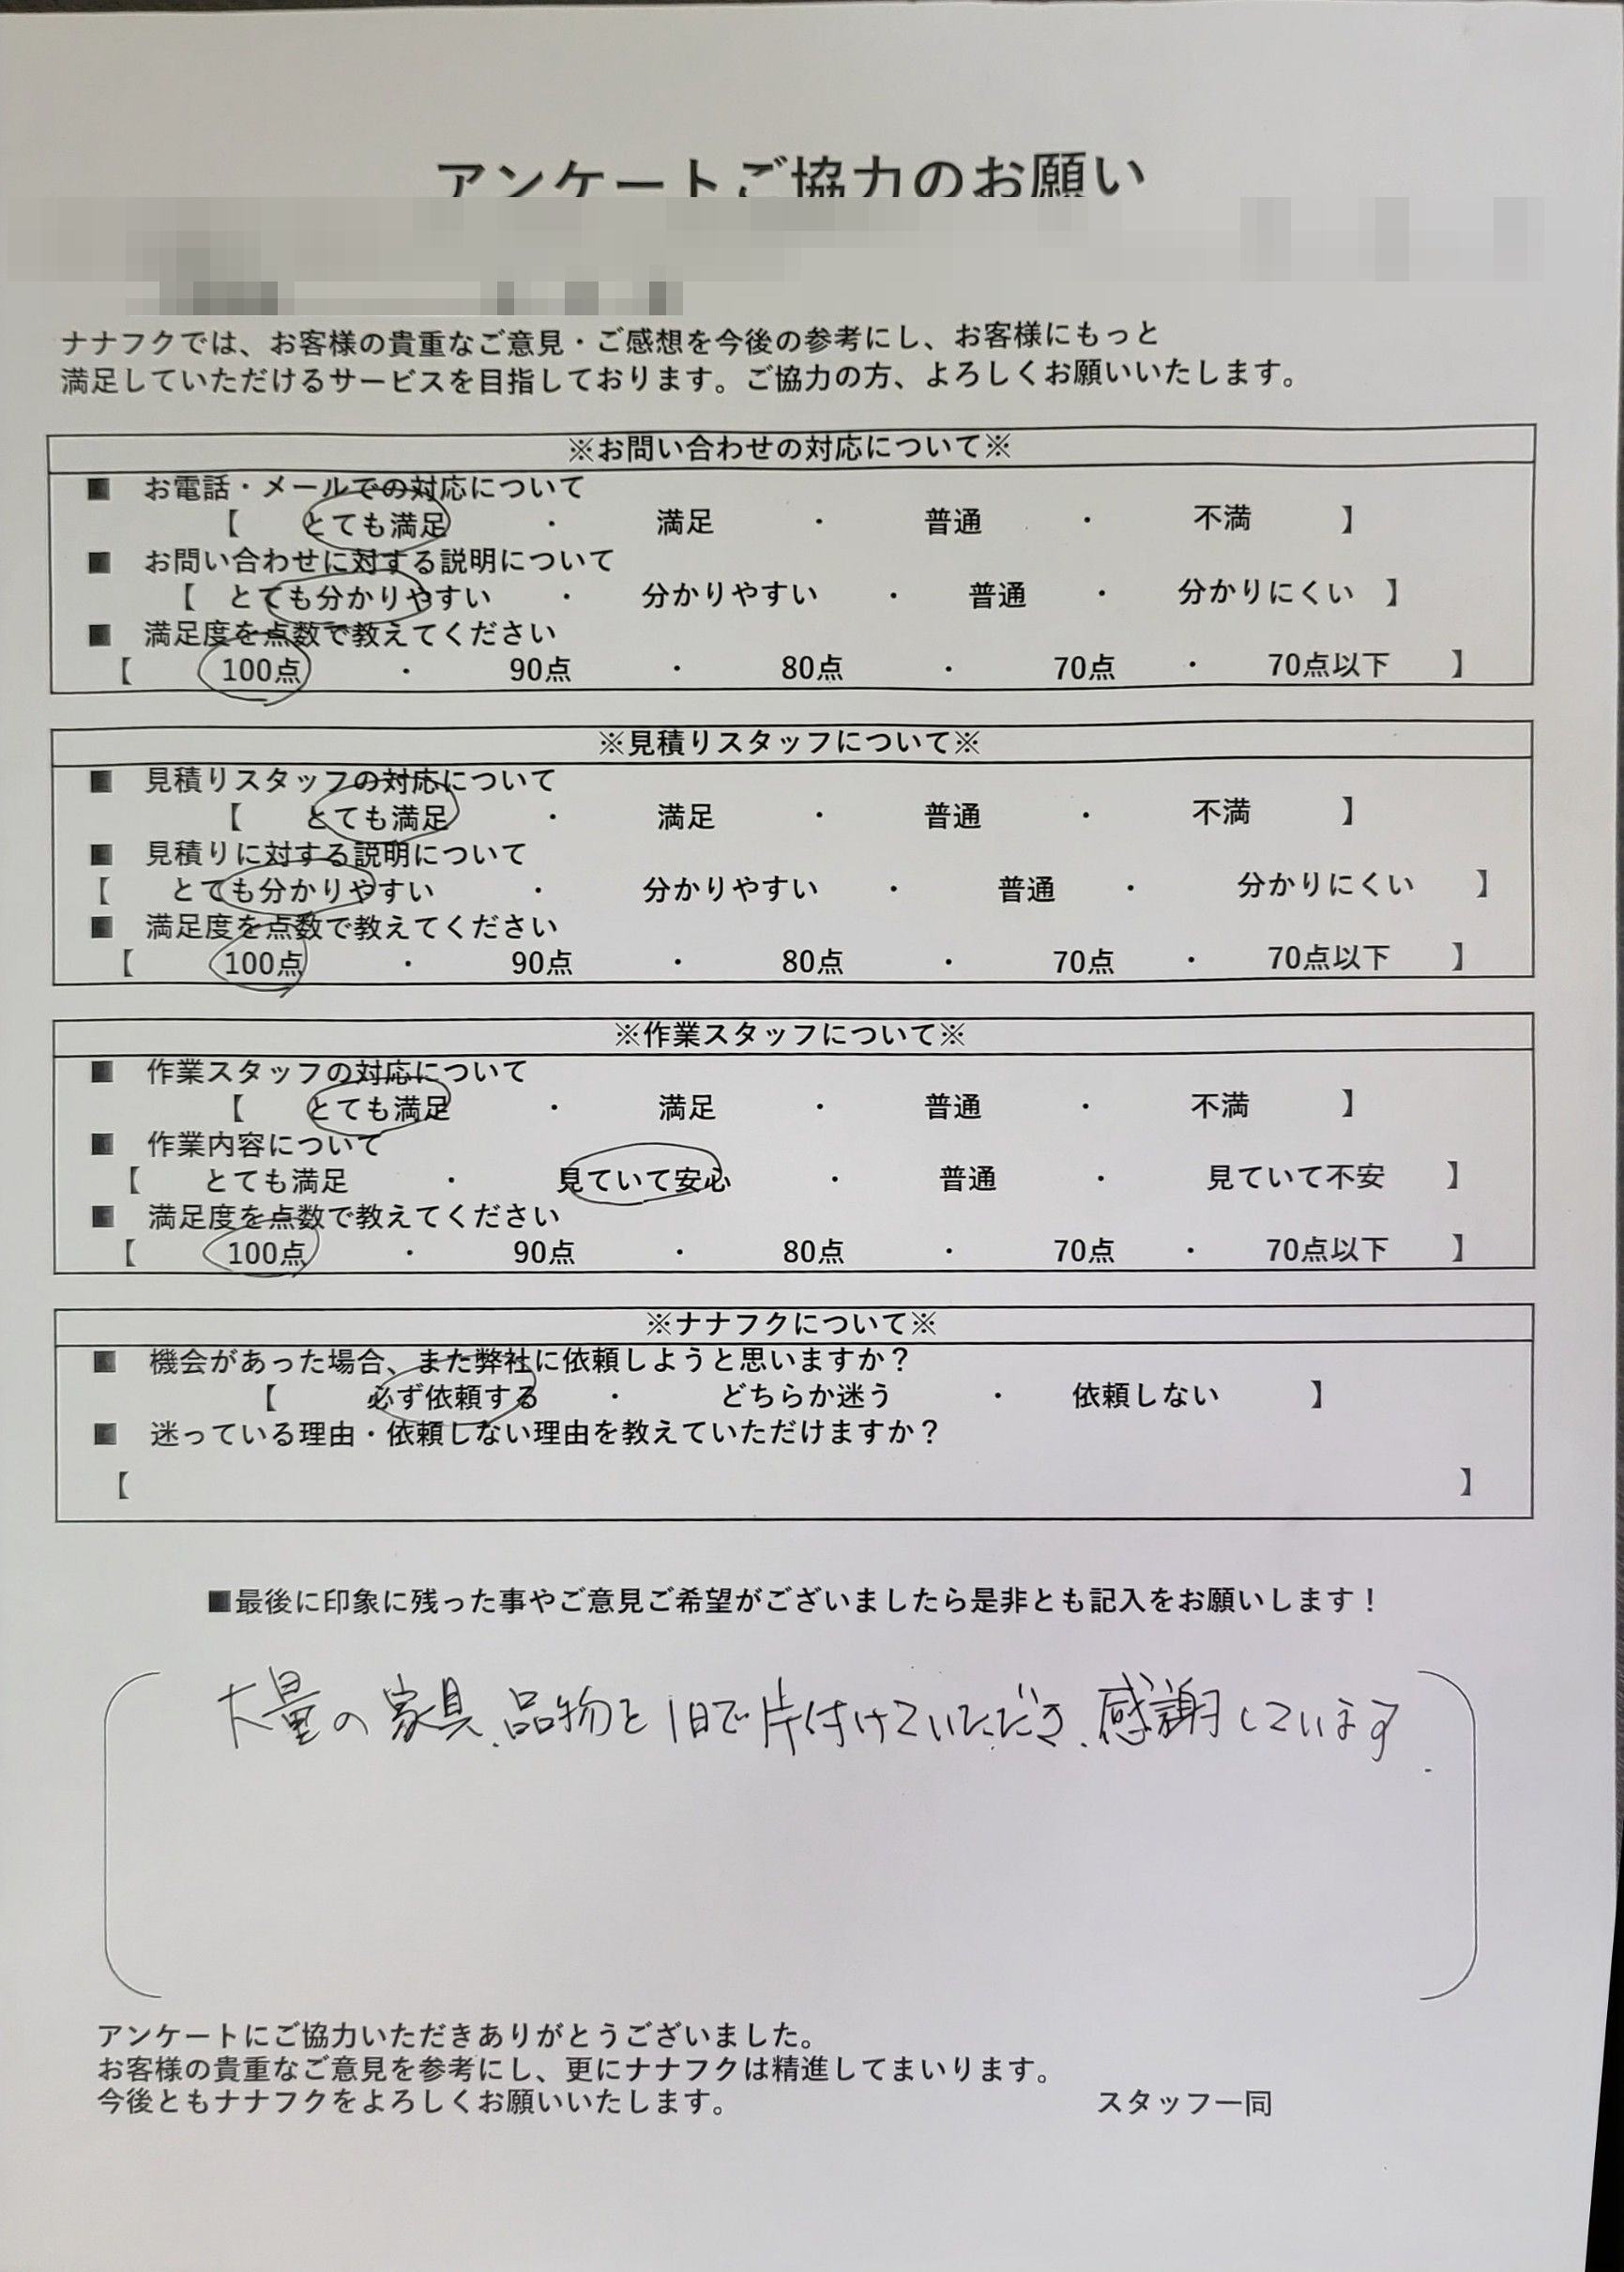 アンケートご協力のお願い
ナナフクでは、お客様の貴重なご意見・ご感想を今後の参考にし、お客様にもっと
満足していただけるサービスを目指しております。ご協力の方、よろしくお願いいたします。
※お問い合わせの対応について※
■ お電話・メールでの対応について
【 とても満足 ・ 満足 ・ 普通 ・ 不満 】
■ お問い合わせに対する説明について
【 とても分かりやすい ・ 分かりやすい ・ 普通 ・ 分かりにくい 】
■ 満足度を点数で教えてください
【 100点 ・ 90点 ・ 80点 ・ 70点 ・ 70点以下 】
※見積りスタッフについて※
■ 見積りスタッフの対応について
【 とても満足 ・ 満足 ・ 普通 ・ 不満 】
■ 見積りに対する説明について
【 とても分かりやすい ・ 分かりやすい ・ 普通 ・ 分かりにくい 】
■ 満足度を点数で教えてください
【 100点 ・ 90点 ・ 80点 ・ 70点 ・ 70点以下 】
※作業スタッフについて※
■ 作業スタッフの対応について
【 とても満足 ・ 満足 ・ 普通 ・ 不満 】
■ 作業内容について
【 とても満足 ・ 見ていて安心 ・ 普通 ・ 見ていて不安 】
■ 満足度を点数で教えてください
【 100点 ・ 90点 ・ 80点 ・ 70点 ・ 70点以下 】
※ナナフクについて※
■ 機会があった場合、また弊社に依頼しようと思いますか？
【 必ず依頼する ・ どちらか迷う ・ 依頼しない 】
■ 迷っている理由・依頼しない理由を教えていただけますか？
【 】
■最後に印象に残った事やご意見ご希望がございましたら是非とも記入をお願いします！
大量の家具、品物を1日で片付けていただき、感謝しています.
アンケートにご協力いただきありがとうございました。
お客様の貴重なご意見を参考にし、更にナナフクは精進してまいります。
今後ともナナフクをよろしくお願いいたします。 スタッフ一同